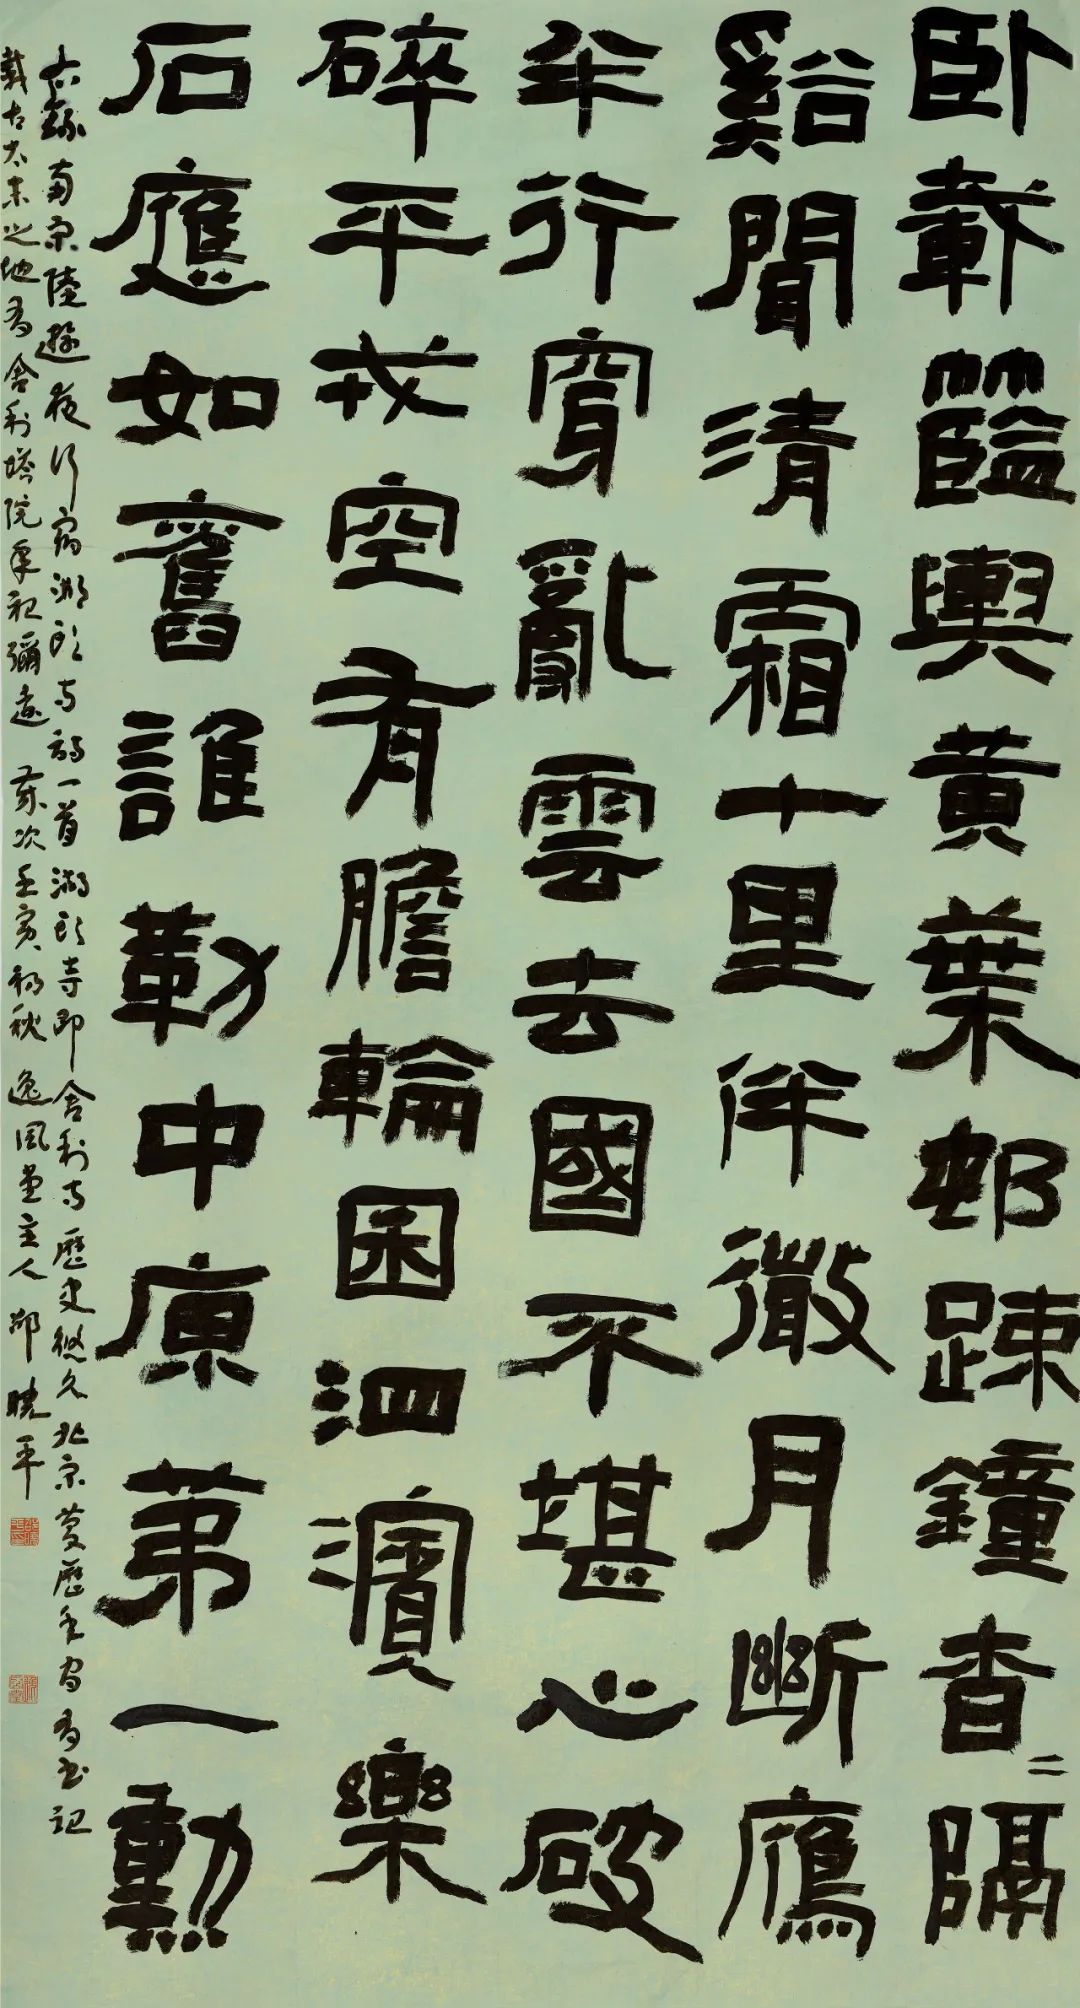 卧載籃輿黄葉邨踈鐘杳二隔
谿聞清霜十里伴微月斷鴈
半行穿亂雲去國不堪心破
碎平戎空有膽輪囷泗濱樂
石應如舊誰勒中原第一勳
右録南宋陸遊夜行宿湖頭寺詩一首湖頭寺即舍利寺歷史悠久北宋慶歷年間有書記
載古太末之地有舍利塔院年祀彌遠 歲次壬寅初秋 逸風堂主人邵曉平